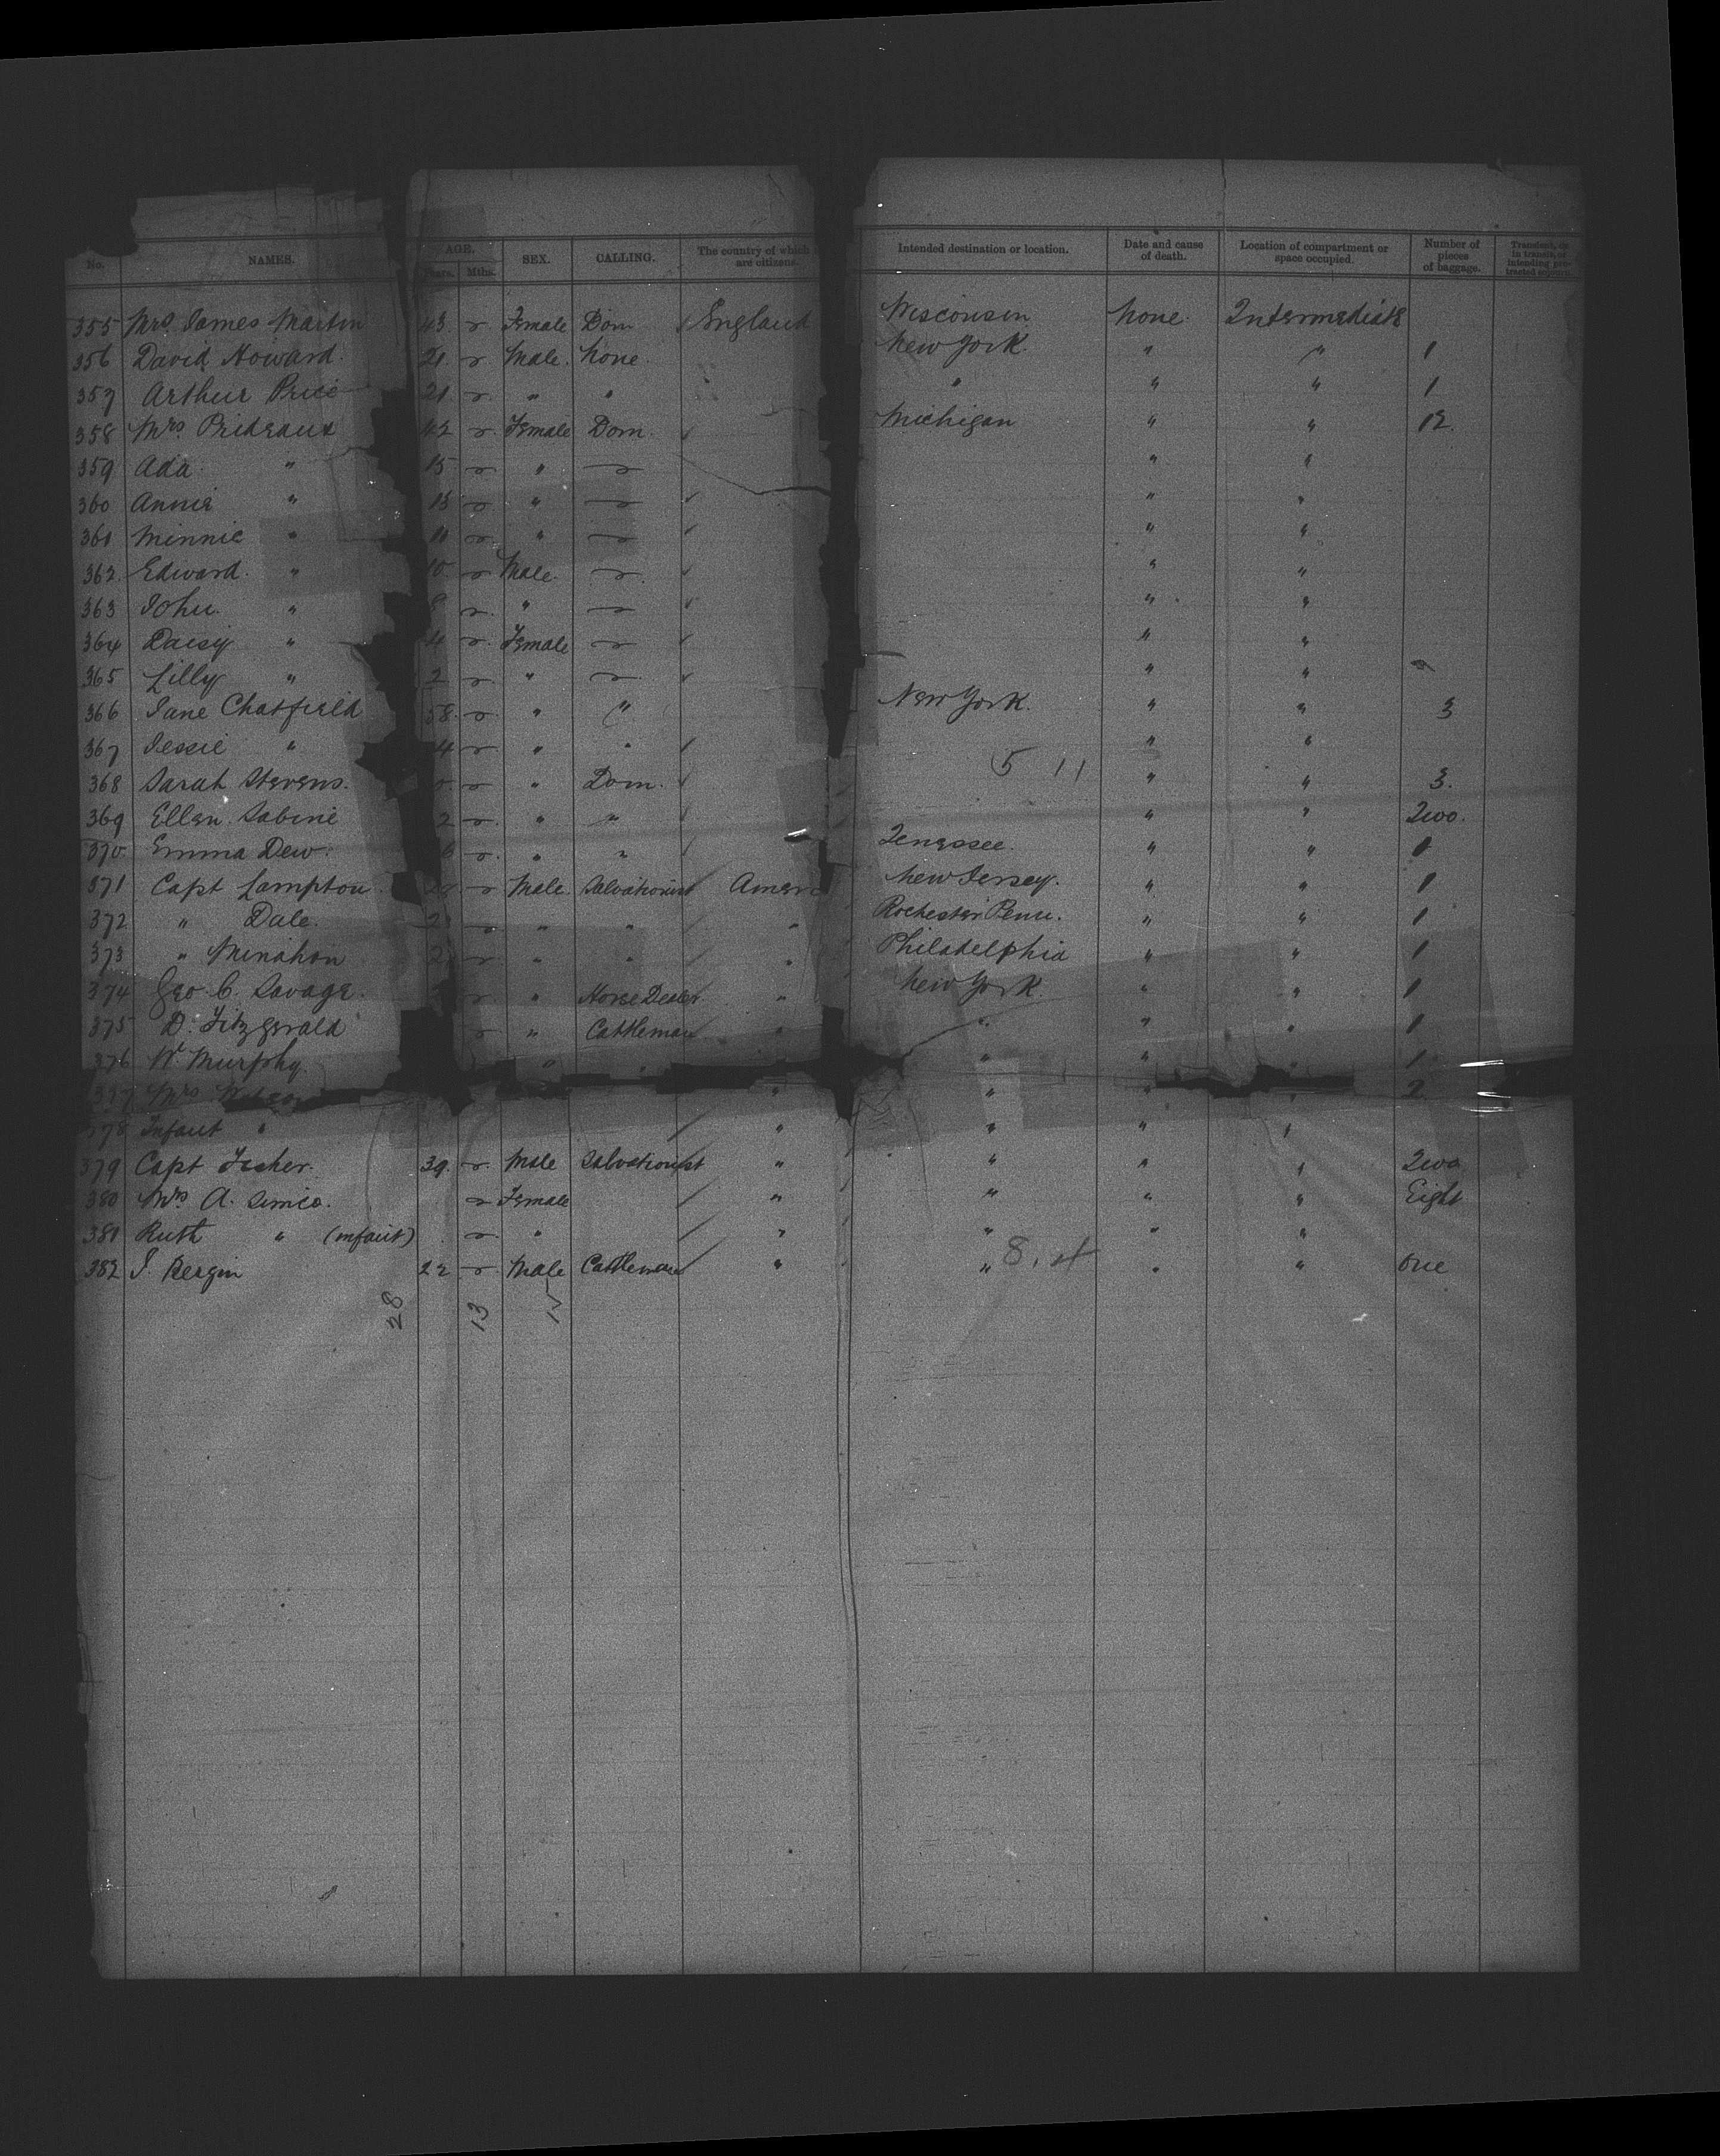 No. NAMES. AGE. Years. Mths. SEX. CALLING. The country of which are citizens. Intended destination or location. Date and cause of death. Location of compartment or space occupied. Number of pieces of baggage.
355 Mrs James Martin 43 Female Dom England Wisconsin None. Intermediate
356 David Howard. 21 Male. None. New York. " " 1
357 Arthur Price 21 " " " " " 1
358 Mrs. Prideaux 42 Female Dom. Michigan " " 12.
359 Ada " 15 " " "
360 Annie " 13 " " "
361 Minnie " 11 " " "
362. Edward. " 10 Male. " "
363 John. " 8 " " "
364 Daisy " 4 Female " "
365 Lilly " 2 " " "
366 Jane Chatfield 58. " " New York. " " 3
367 Jessie " 4 " " " "
5 11
368 Sarah Stevens. " Dom. " " 3.
369 Ellen Sabine 2 " " " " Two.
370 Emma Dew. 6 " " Tenessee. " " 1
371 Capt Lampton. Male. Salvationist Ameri New Jersey. " " 1
372 " Dale. 2 " " " Rochester Penn. " " 1
373 " Minahan 2 " " " Philadelphia " " 1
374 Geo. C. Savage. " Horse Dealer " New York. " " 1
375 D. Fitzgerald " Cattleman " " " " 1
376 W. Murphy. " " " " " 1
377 Mrs " " " " 2
378 Infant " " " " "
379 Capt Fisher. 39. Male Salvationist " " " " Two
380 Mrs A. Simco. Female " " " " Eight
381 Ruth " (infant) " " " " "
382 J. Bergin 22 Male Cattleman " " " " One
8.4
28 13 15